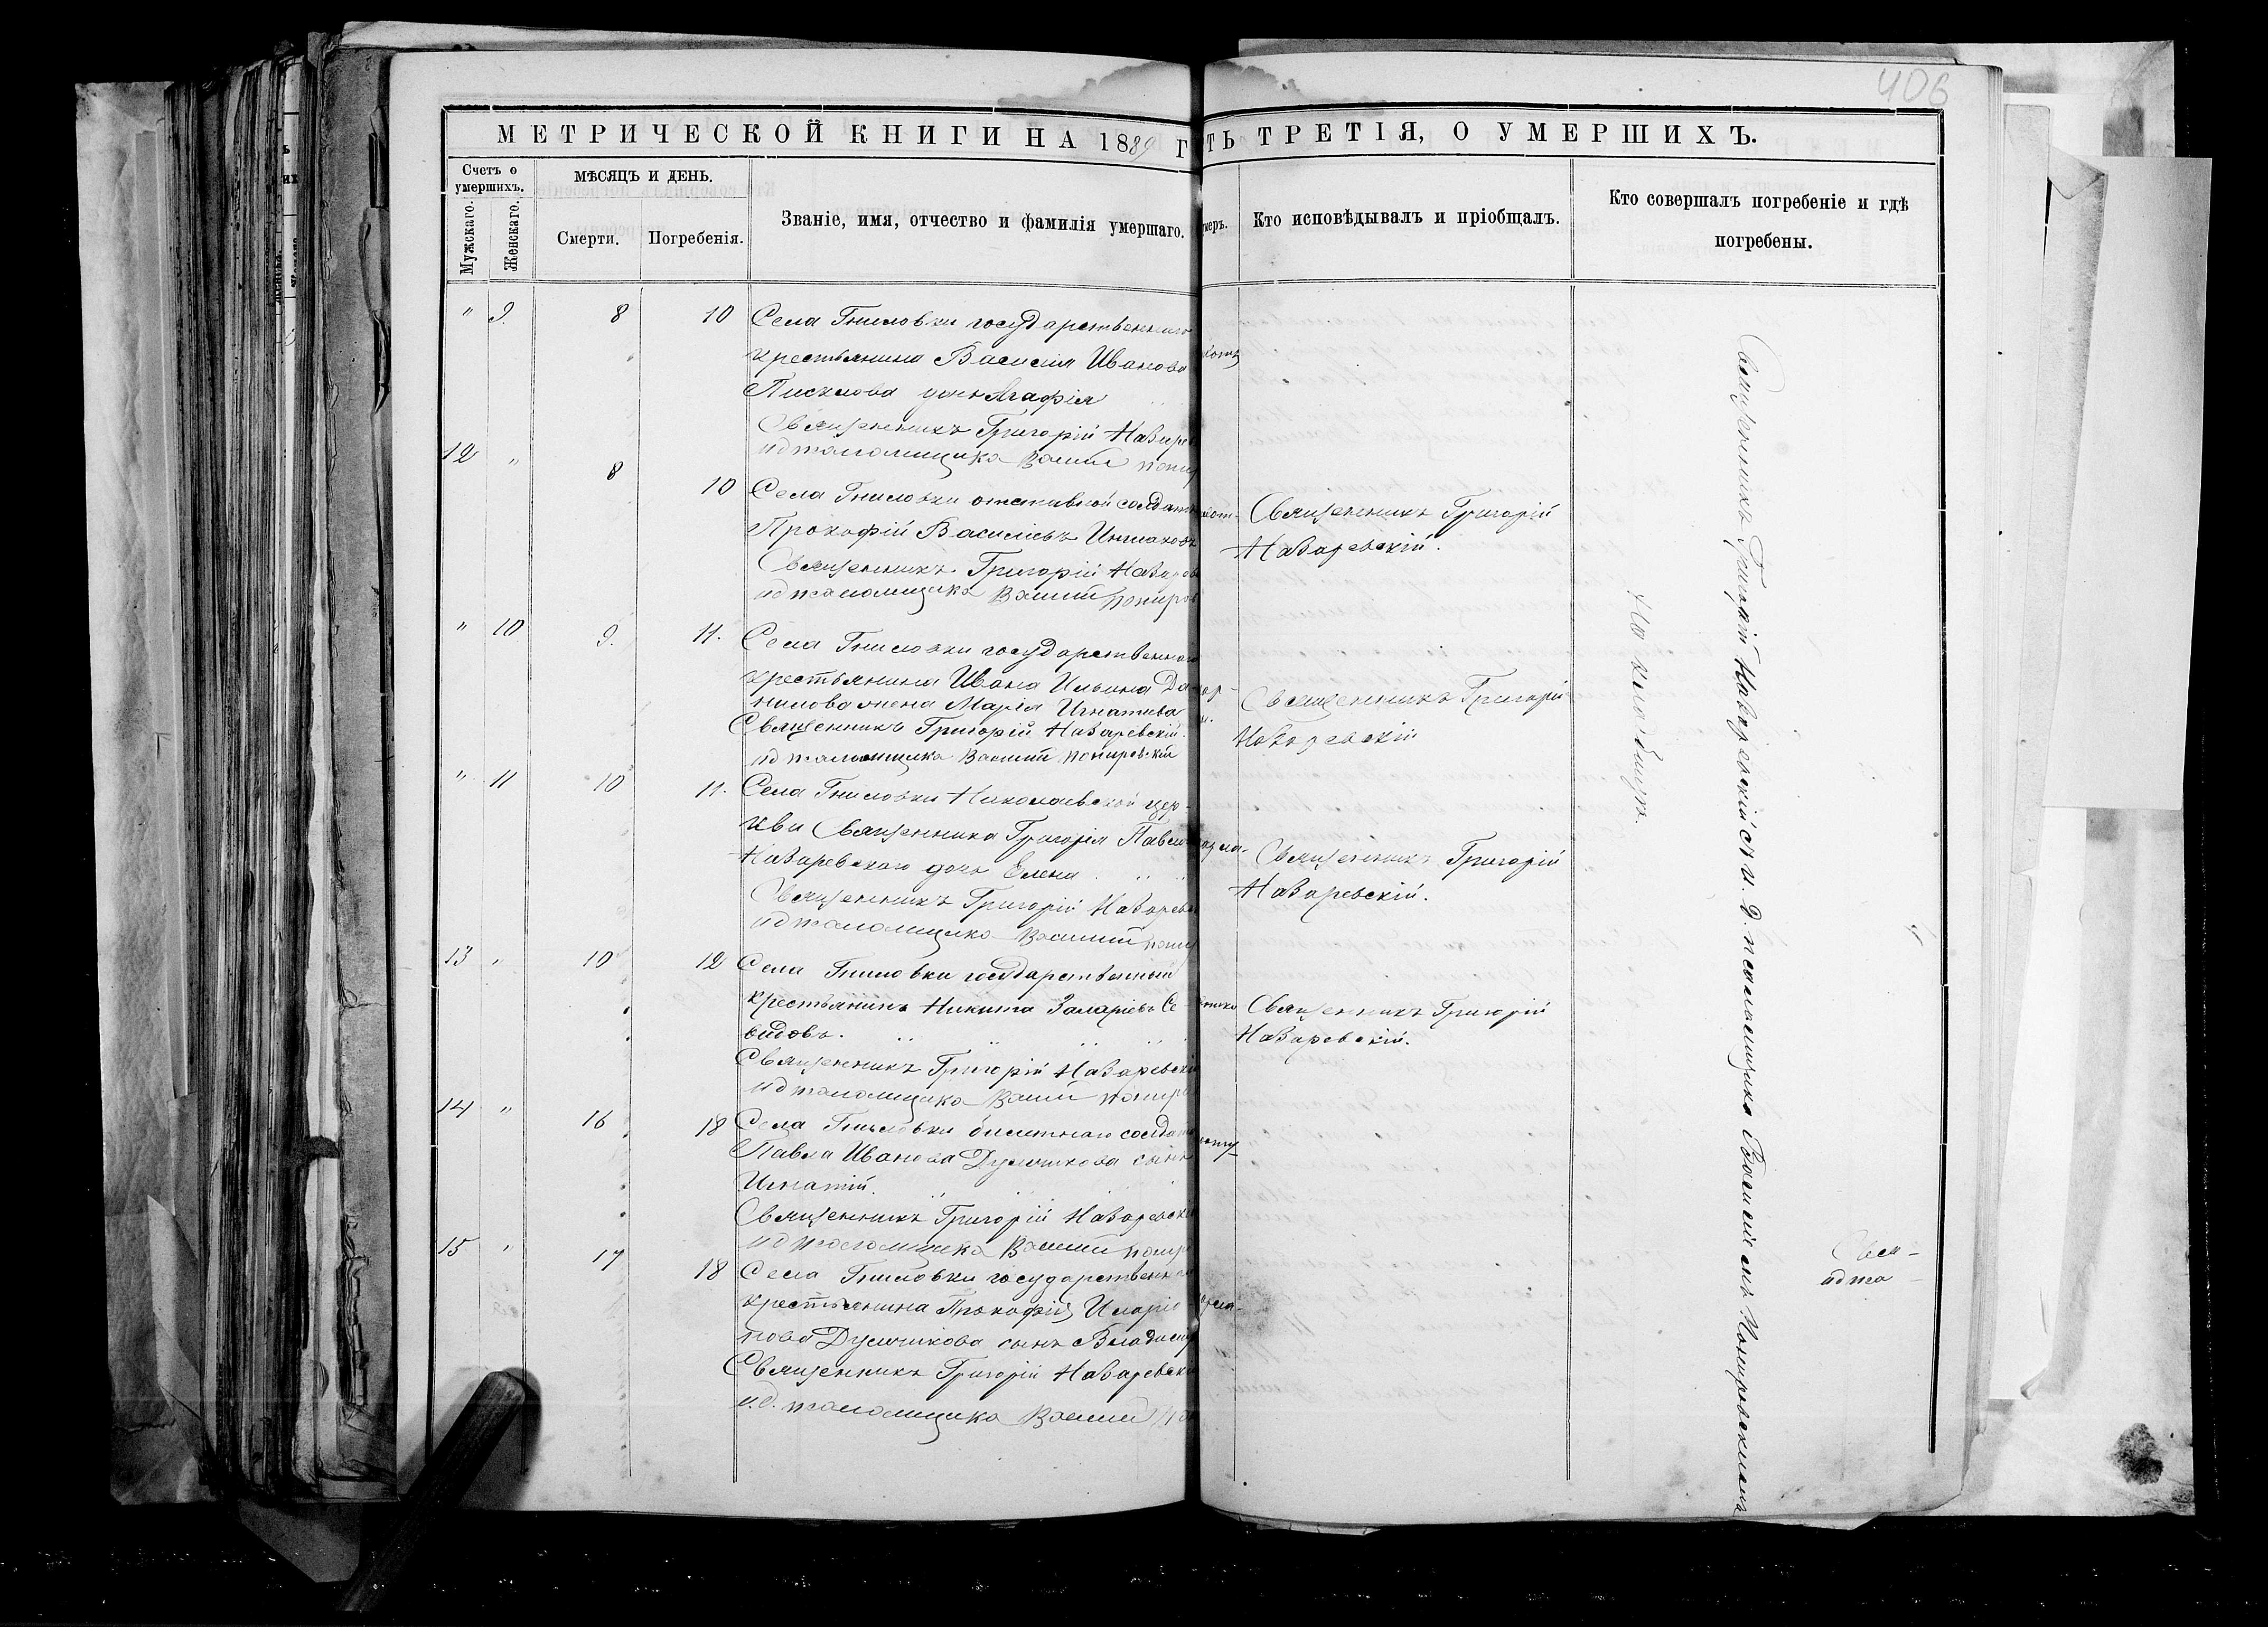 406
МЕТРИЧЕСКОЙ КНИГИ НА 1889 Г
ТЬ ТРЕТІЯ, О УМЕРШИХЪ.
Счетъ о умершихъ.
Мужскаго.
Женскаго.
МѢСЯЦЪ И ДЕНЬ.
Смерти.
Погребенія.
Званіе, имя, отчество и фамилія умершаго.
меръ.
Кто исповѣдывалъ и пріобщалъ.
Кто совершалъ погребеніе и гдѣ
погребены.
" 9. 8 10 Села Гниловки государственнаго
крестьянина Василія Иванова
дочь Агафія
Священникъ Григорій Назарев
ид псаломщика Василій Попир
12 " 8 10 Села Гниловки отставной солдатъ
Прокофій Васильевъ
Священникъ Григорій Назарев
ид псаломщика Василій Попиров
Священникъ Григорій
Назаревскій.
" 10 9. 11. Села Гниловки государственнаго
крестьянина Ивана Ильина Да-
нилова жена Марія Игнатьева
Священникъ Григорій Назаревскій.
ид псаломщика Василій Попировскій
Священникъ Григорій
Назаревскій
" 11 10 11. Села Гниловки Николаевской цер-
кви Священника Григорія Павлов
Назаревскаго дочь Елена
Священникъ Григорій Назарев
ид псаломщика Василій Попир
Священникъ Григорій
Назаревскій.
13 " 10 12 Села Гниловки государственный
крестьянинъ Никита Се-
видовъ.
Священникъ Григорій Назаревскій
ид псаломщика Василій Попиро
Священникъ Григорій
Назаревскій.
14 " 16 18 Села Гниловки билетнаго солдата
Павла Иванова Думчикова сынъ
Игнатій.
Священникъ Григорій Назаревскій
ид псаломщика Василій Попир
15 " 17 18 Села Гниловки государственнаго
крестьянина Прокофія Иларіо-
нова Думчикова сынъ Владимір
Священникъ Григорій Назаревскі
и.д. псаломщика Василій По
Священникъ Григорій Назаревскій съ и. д. псаломщика Василіемъ Попировскимъ
На кладбищѣ.
Свя-
ид пса